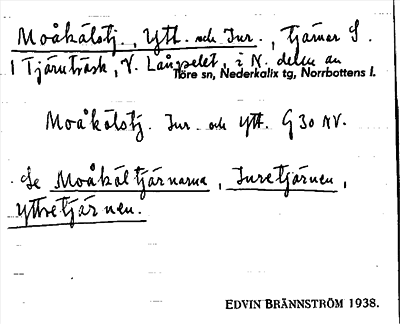 Moåkälstj., Ytt. och Inr., tjärnar S.
I Tjärnträsk, V. Långselet, i N. delen av
Töre sn, Nederkalix tg, Norrbottens l.
Moåkälstj. Inr. och Ytt. G 30 NV.
Se Moåkältjärnarna, Inretjärnen,
Yttretjärnen.
EDVIN BRÄNNSTRÖM 1938.